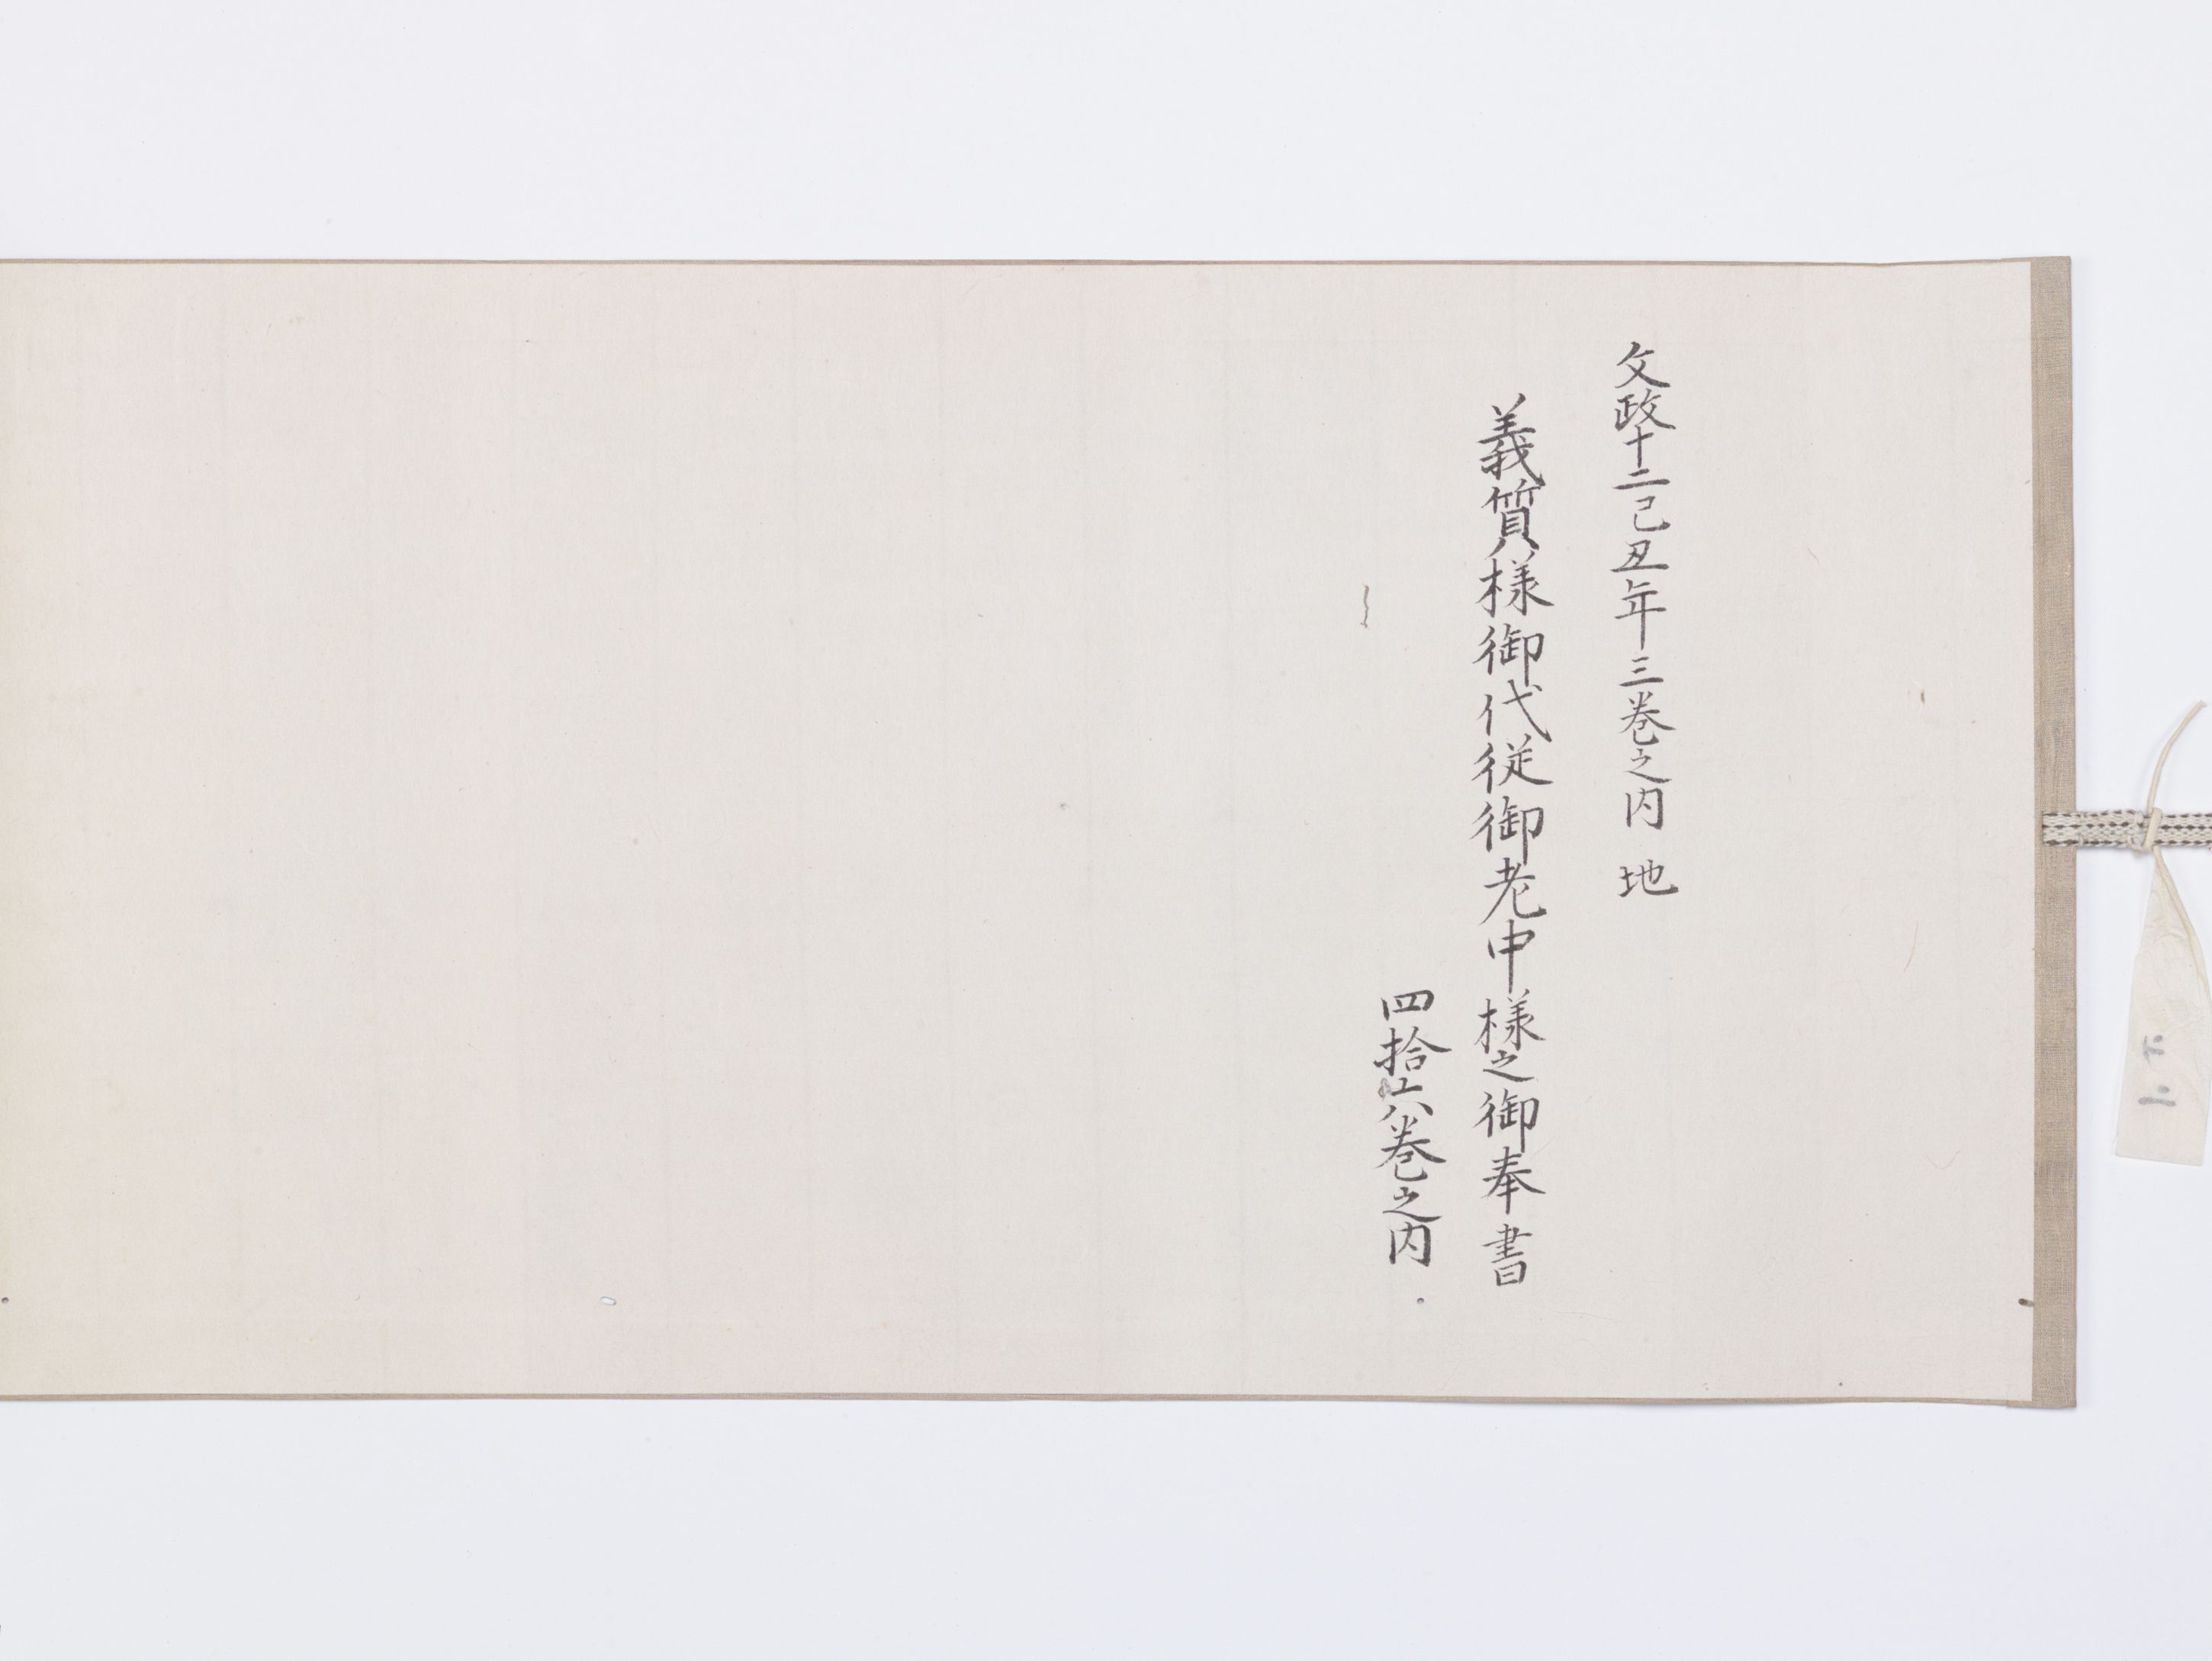 文政十二己丑年三巻之内 地
義質様御代従御老中様之御奉書
四拾六巻之内